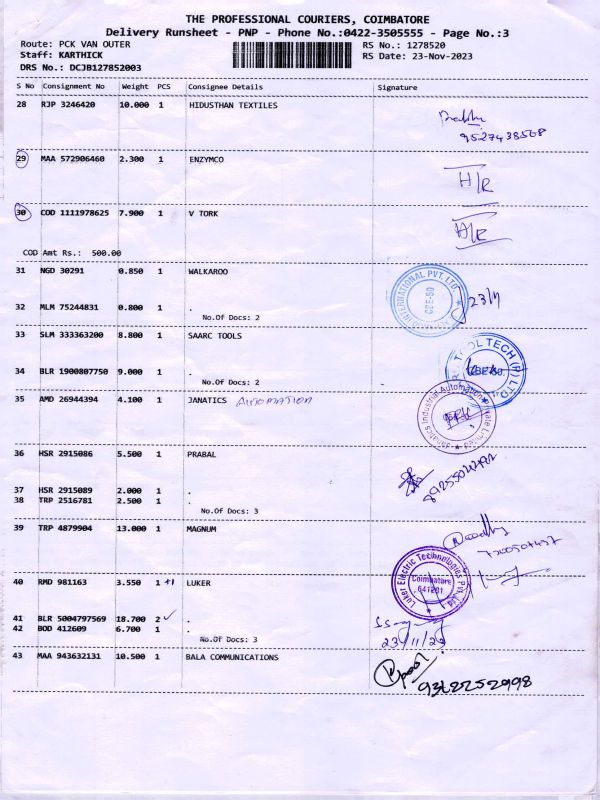 THE PROFESSIONAL COURIERS, COIMBATORE
Delivery Runsheet - PNP - Phone No.:0422-3505555 - Page No.:3
Route: PCK VAN OUTER RS No.: 1278520
Staff: KARTHICK RS Date: 23-Nov-2023
DRS No.: DCJB127852003
S No Consignment No Weight PCS Consignee Details Signature
28 RJP 3246420 10.000 1 HIDUSTHAN TEXTILES
9527438568
29 MAA 572906460 2.300 1 ENZYMCO
H/R
30 COD 1111978625 7.900 1 V TORK
H/R
COD Amt Rs.: 500.00
31 NGD 30291 0.850 1 WALKAROO
INTERNATIONAL PVT. LTD.
23/11
32 MLM 75244831 0.800 1 .
No.Of Docs: 2
33 SLM 333363200 8.800 1 SAARC TOOLS
TOOL TECH (P) LTD
34 BLR 1900807750 9.000 1 .
No.Of Docs: 2
35 AMD 26944394 4.100 1 JANATICS AUTOMATION
Janatics Industrial Automation Private Limited
36 HSR 2915086 5.500 1 PRABAL
37 HSR 2915089 2.000 1 .
38 TRP 2516781 2.500 1 .
No.Of Docs: 3
39 TRP 4879904 13.000 1 MAGNUM
40 RMD 981163 3.550 1 +1 LUKER
Luker Electric Technologies Pvt. Ltd.
Coimbatore
641201
41 BLR 5004797569 18.700 2 ✓ .
42 BOD 412609 6.700 1 .
23/11/23
No.Of Docs: 3
43 MAA 943632131 10.500 1 BALA COMMUNICATIONS